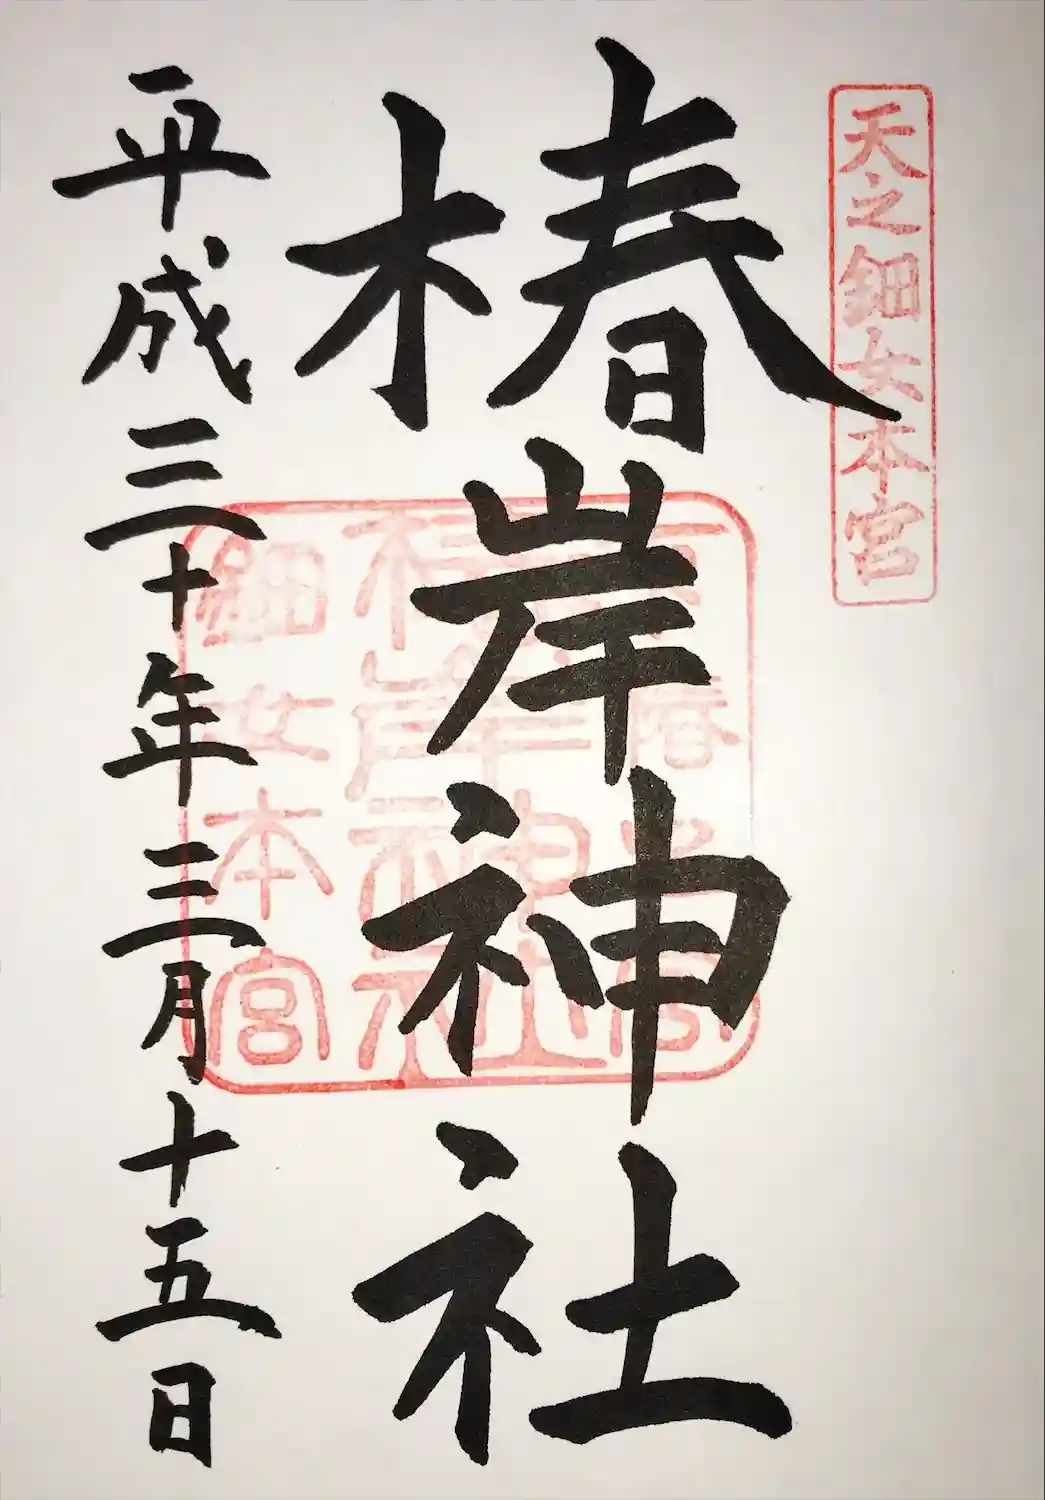 天之鈿女本宮
椿岸神社
椿岸神社
鈿女本宮
平成三十年三月十五日